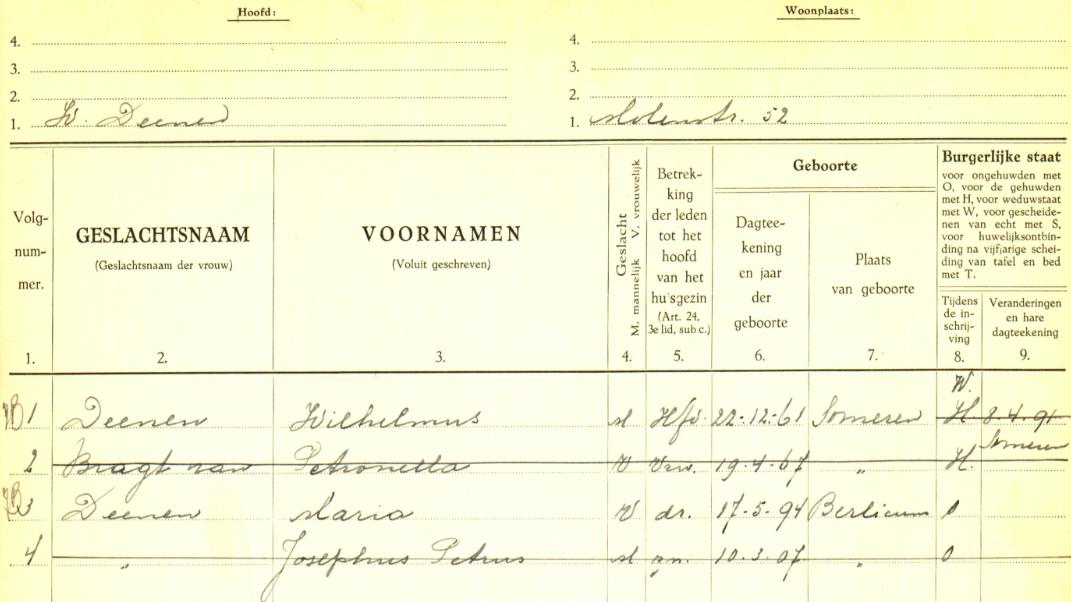 Hoofd: Woonplaats:
4. 4.
3. 3.
2. 2.
1. W. Deenen 1. Molenstr. 52
Volg-
num-
mer.
1.
GESLACHTSNAAM
(Geslachtsnaam der vrouw)
2.
VOORNAMEN
(Voluit geschreven)
3.
Geslacht
M. mannelijk V. vrouwelijk
4.
Betrek-
king
der leden
tot het
hoofd
van het
huisgezin
(Art. 24,
3e lid, sub c.)
5.
Geboorte
Dagtee-
kening
en jaar
der
geboorte
6.
Plaats
van geboorte
7.
Burgerlijke staat
voor ongehuwden met
O, voor de gehuwden
met H, voor weduwstaat
met W, voor gescheide-
nen van echt met S,
voor huwelijksontbin-
ding na vijfjarige schei-
ding van tafel en bed
met T.
Tijdens
de in-
schrij-
ving
8.
Veranderingen
en hare
dagteekening
9.
W.
1 Deenen Wilhelmus M Hfd. 22-12-61 Someren H 8-4-91
Someren
2 Bragt van Petronella V vrw. 19-4-67 " H.
3 Deenen Maria V dr. 17-5-94 Berlicum O
4 " Josephus Petrus M zn. 10-3-07 " O